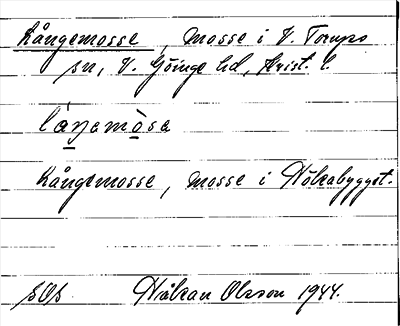 Långemosse, mosse i V. Torups
sn, V. Göinge hd, Krist. l.
láŋemòsa
Långemosse, mosse i Nöbbabygget.
sOs Håkan Olsson 1944.